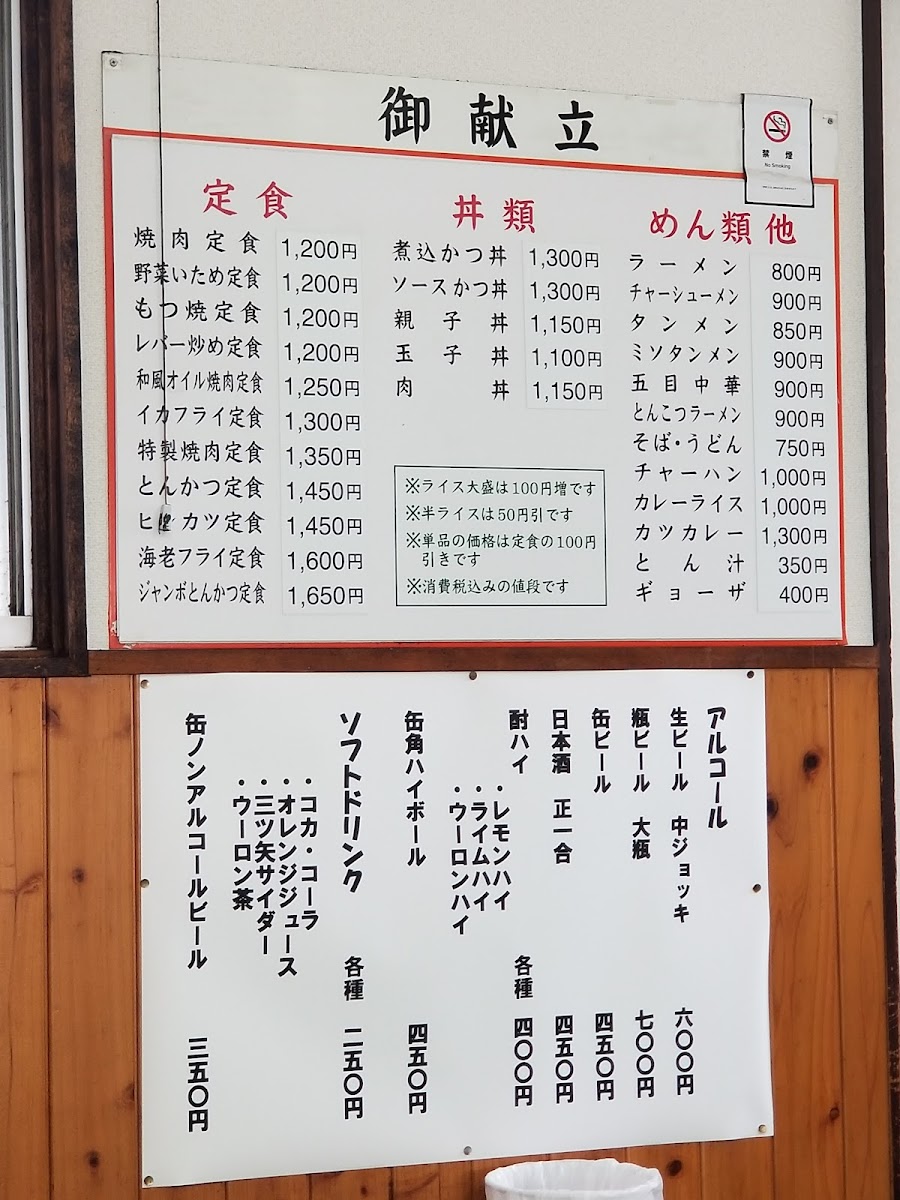 御献立
禁煙
No Smoking
定食
焼肉定食 1,200円
野菜いため定食 1,200円
もつ焼定食 1,200円
レバー炒め定食 1,200円
和風オイル焼肉定食 1,250円
イカフライ定食 1,300円
特製焼肉定食 1,350円
とんかつ定食 1,450円
ヒレカツ定食 1,450円
海老フライ定食 1,600円
ジャンボとんかつ定食 1,650円
丼類
煮込かつ丼 1,300円
ソースかつ丼 1,300円
親子丼 1,150円
玉子丼 1,100円
肉丼 1,150円
※ライス大盛は100円増です
※半ライスは50円引です
※単品の価格は定食の100円
引きです
※消費税込みの値段です
めん類他
ラーメン 800円
チャーシューメン 900円
タンメン 850円
ミソタンメン 900円
五目中華 900円
とんこつラーメン 900円
そば・うどん 750円
チャーハン 1,000円
カレーライス 1,000円
カツカレー 1,300円
とん汁 350円
ギョーザ 400円
アルコール
生ビール 中ジョッキ 六〇〇円
瓶ビール 大瓶 七〇〇円
缶ビール 四五〇円
日本酒 正一合 四五〇円
酎ハイ 各種 四〇〇円
・レモンハイ
・ライムハイ
・ウーロンハイ
缶角ハイボール 四五〇円
ソフトドリンク 各種 二五〇円
・コカ・コーラ
・オレンジジュース
・三ツ矢サイダー
・ウーロン茶
缶ノンアルコールビール 三五〇円